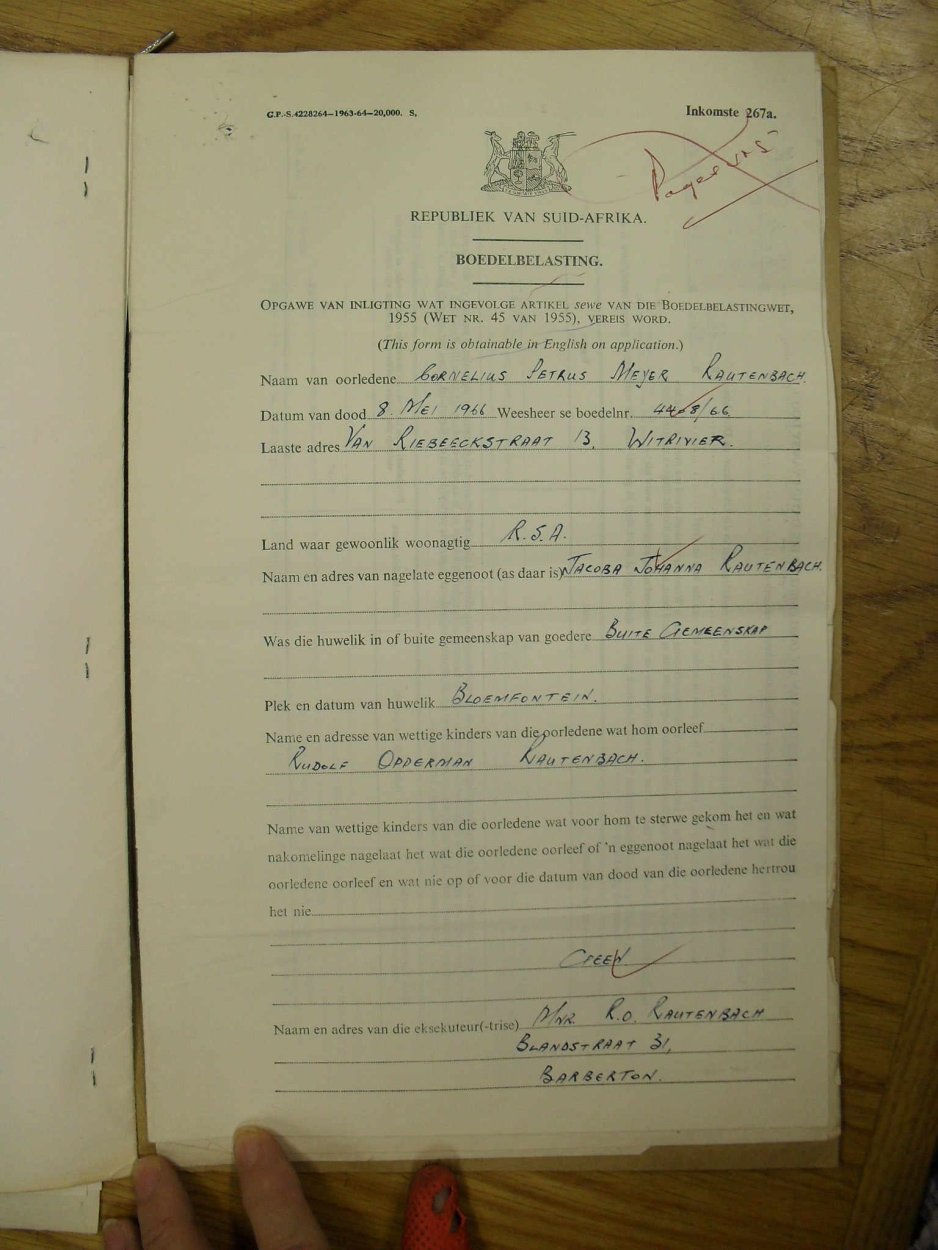 G.P.-S.4228264—1963-64—20,000. S.
Inkomste 267a.
REPUBLIEK VAN SUID-AFRIKA.
BOEDELBELASTING.
OPGAWE VAN INLIGTING WAT INGEVOLGE ARTIKEL sewe VAN DIE BOEDELBELASTINGWET,
1955 (WET NR. 45 VAN 1955), VEREIS WORD.
(This form is obtainable in English on application.)
Naam van oorledene CORNELIUS PETRUS MEYER RAUTENBACH.
Datum van dood 8 MEI 1966 Weesheer se boedelnr. 4408/66
Laaste adres VAN RIEBEECKSTRAAT 13, WITRIVIER.
Land waar gewoonlik woonagtig R.S.A.
Naam en adres van nagelate eggenoot (as daar is) JACOBA JOHANNA RAUTENBACH.
Was die huwelik in of buite gemeenskap van goedere BUITE GEMEENSKAP
Plek en datum van huwelik BLOEMFONTEIN.
Name en adresse van wettige kinders van die oorledene wat hom oorleef
RUDOLF OPPERMAN RAUTENBACH.
Name van wettige kinders van die oorledene wat voor hom te sterwe gekom het en wat
nakomelinge nagelaat het wat die oorledene oorleef of 'n eggenoot nagelaat het wat die
oorledene oorleef en wat nie op of voor die datum van dood van die oorledene hertrou
het nie
GEEN
Naam en adres van die eksekuteur(-trise) MNR. R.O. RAUTENBACH
BLANDSTRAAT 31,
BARBERTON.